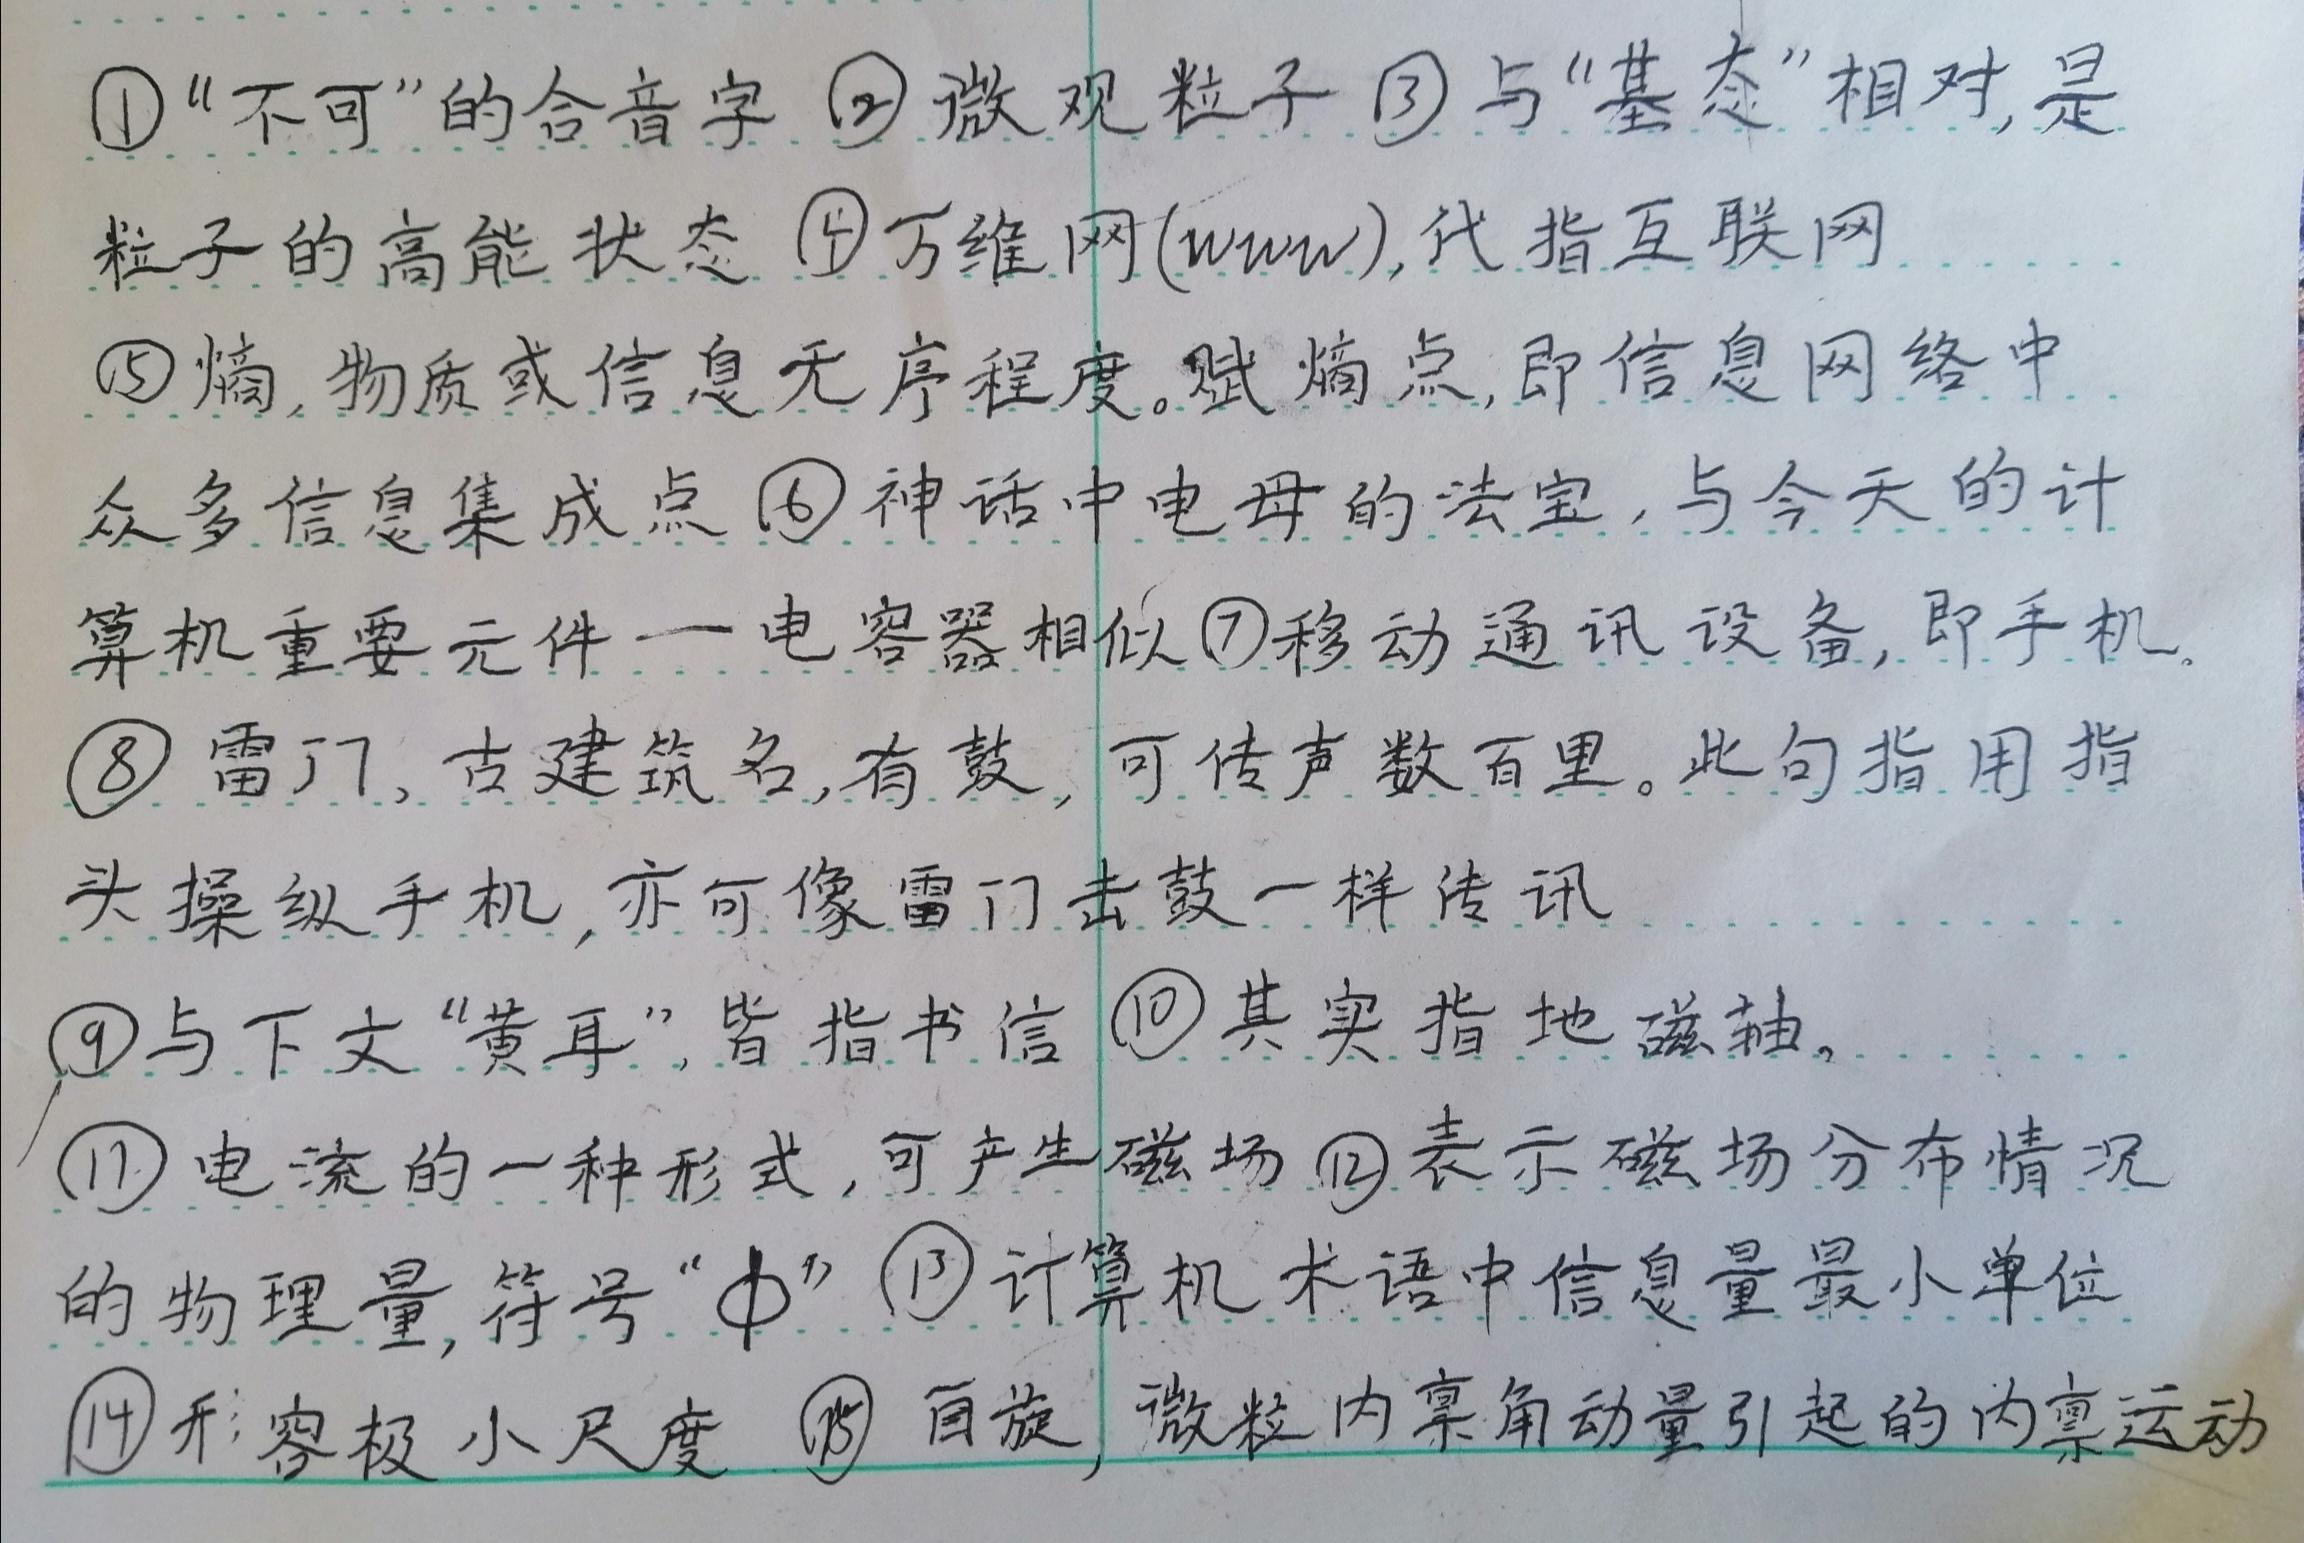 ①“不可”的合音字 ②微观粒子 ③与“基态”相对,是
粒子的高能状态 ④万维网(www),代指互联网
⑤熵,物质或信息无序程度。赋熵点,即信息网络中
众多信息集成点 ⑥神话中电母的法宝,与今天的计
算机重要元件一电容器相似⑦移动通讯设备,即手机。
⑧雷门、古建筑名,有鼓,可传声数百里。此句指用指
头操纵手机,亦可像雷门击鼓一样传讯
⑨与下文“黄耳”,皆指书信 ⑩其实指地磁轴。
⑪电流的一种形式,可产生磁场 ⑫表示磁场分布情况
的物理量,符号“Φ” ⑬计算机术语中信息量最小单位
⑭形容极小尺度 ⑮自旋,微粒内禀角动量引起的内禀运动